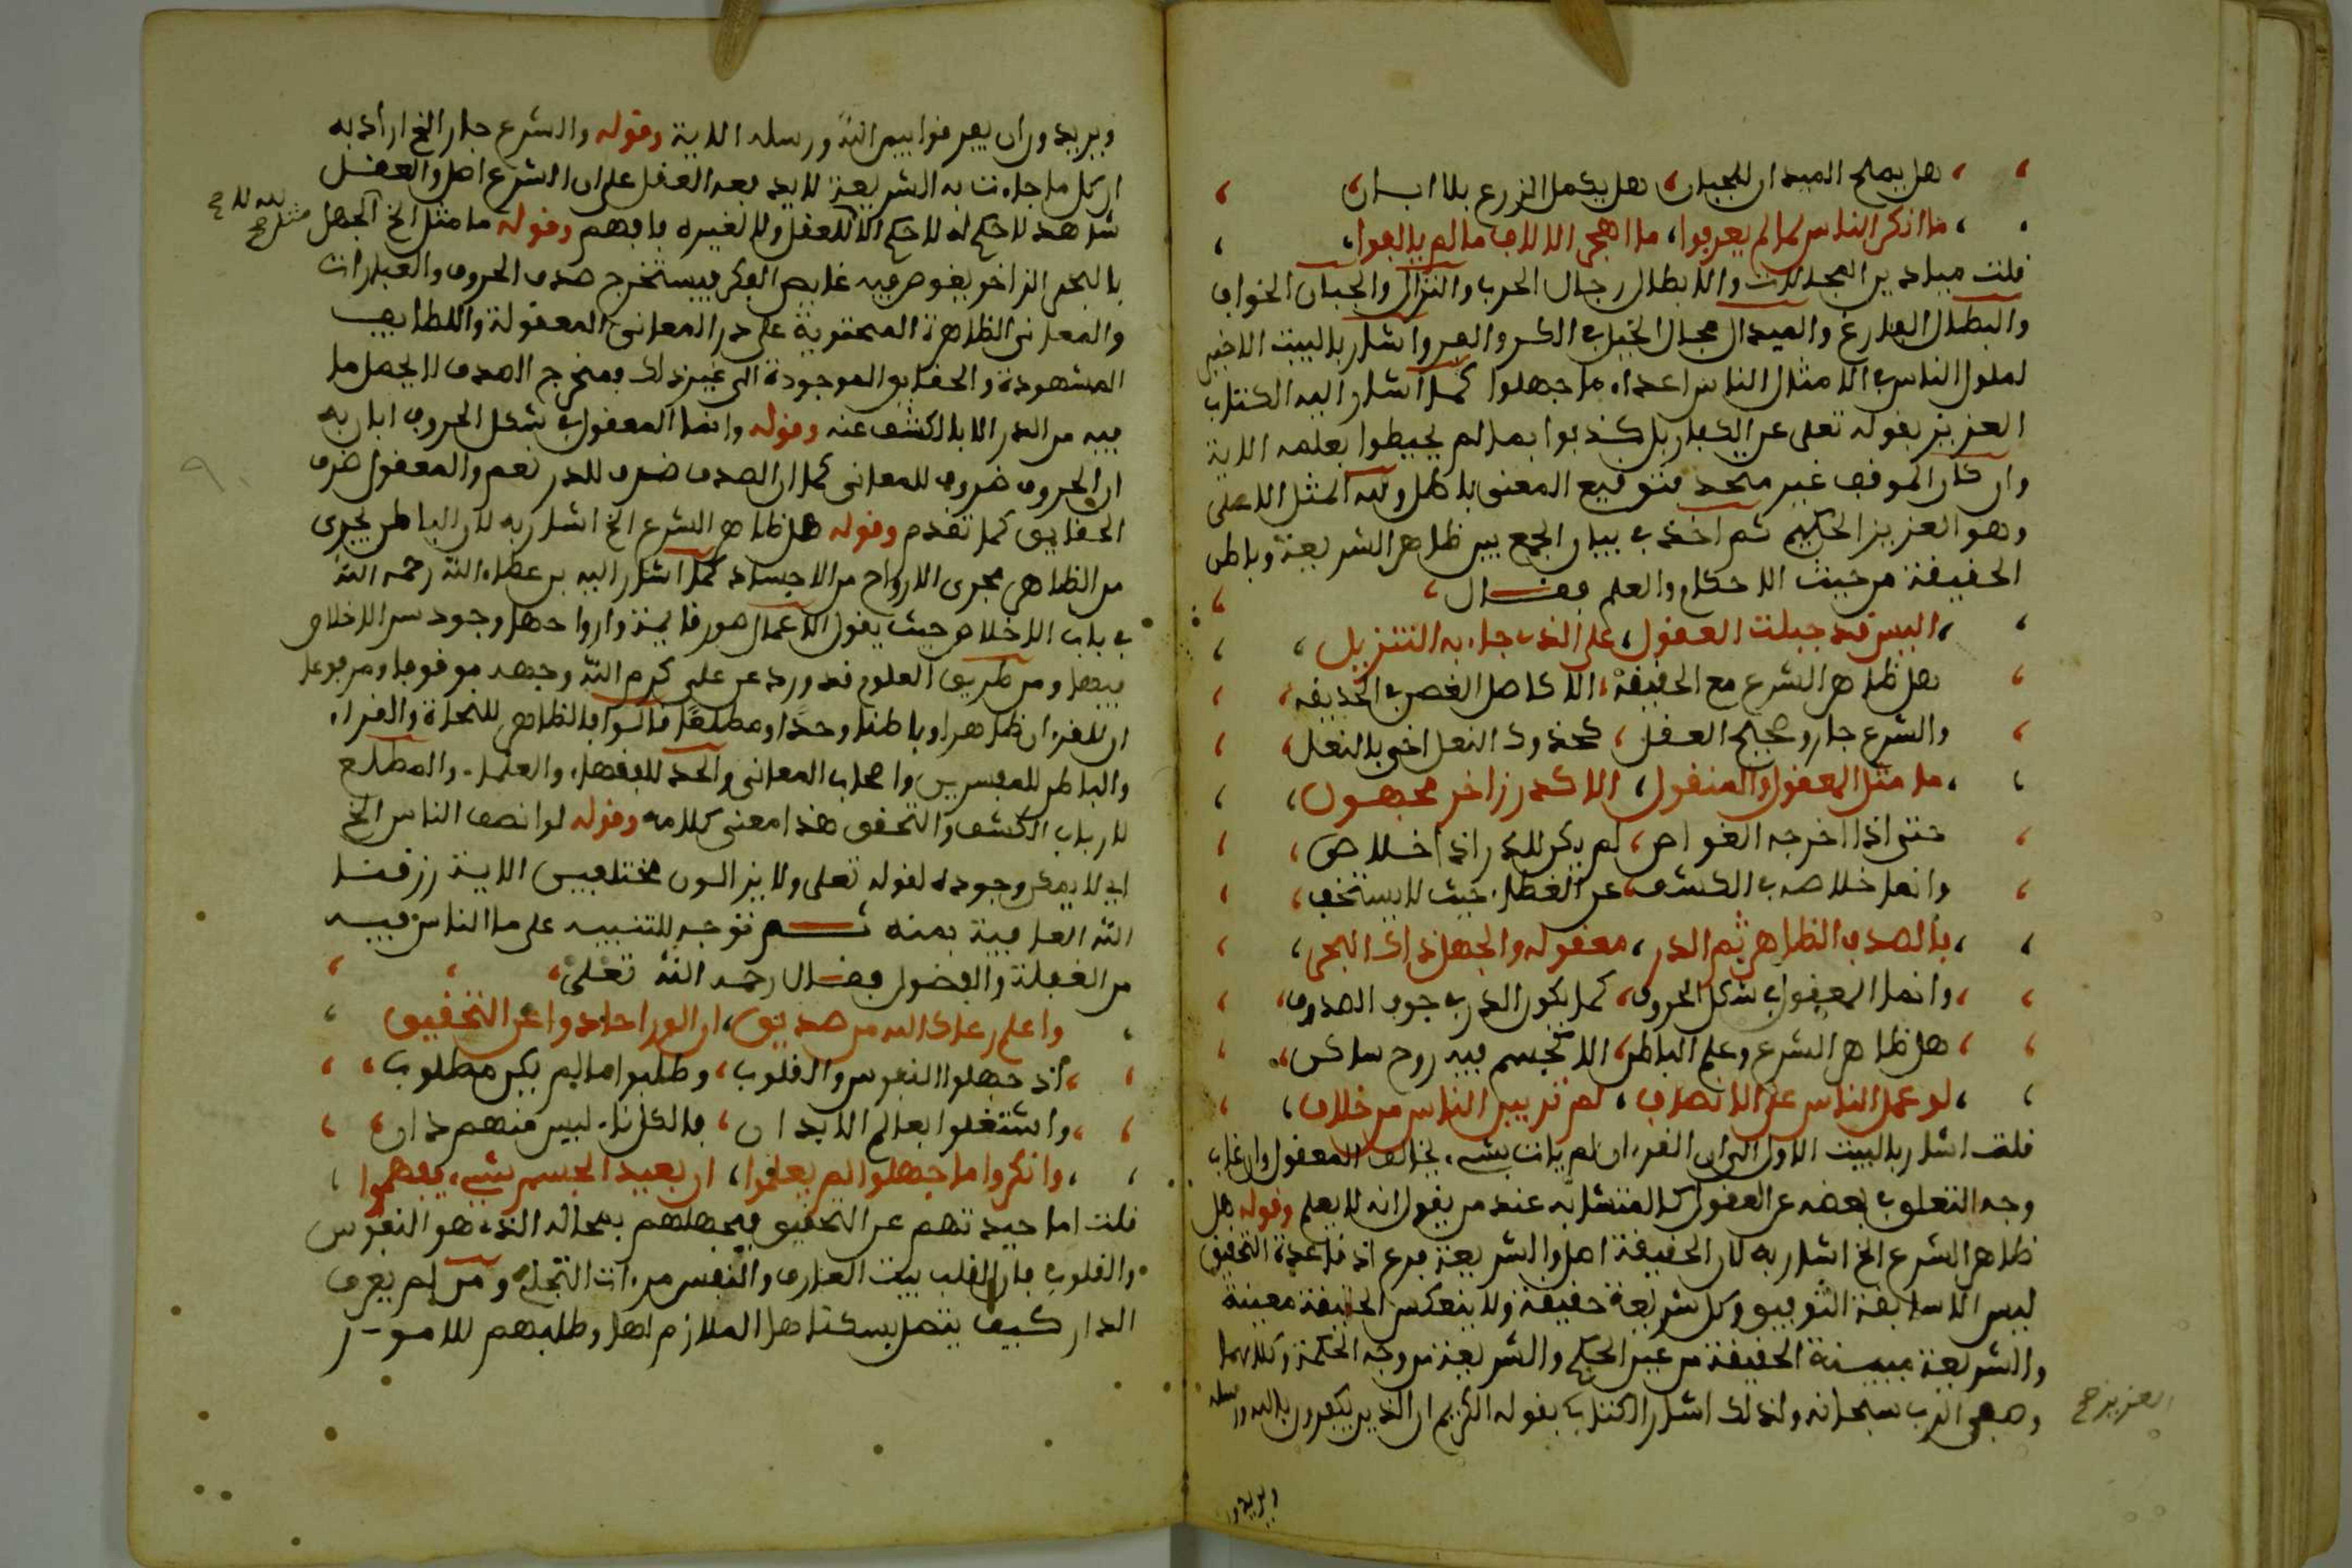 هل يصلح الميدان للجبان، هل يكمل الزرع بلا ابان
ما انكر الناس لما لم يعرفوا، ما اهجر الالاف ما لم يالفوا،
قلت ميادين المجالات والابطال رجال الحرب والنزال والجبان الخواف
والبطال الفارغ والميدان مجال الخيل في الكر والفر واشار بالبيت الاخير
لقول الناس في الامثال الناس اعداء ما جهلوا كما اشار اليه الكتاب
العزيز بقوله تعلى عن الكفار بل كذبوا بما لم يحيطوا بعلمه الاية
وان كان الموقف غير متحد فتوقيع المعنى باطل ولله المثل الاعلى
وهو العزيز الحكيم ثم اخذ في بيان الجمع بين ظاهر الشريعة وباطن
الحقيقة من حيث الاحكام والعلم فقال،
، اليس قد جبلت العقول، على الذي جاء به التنزيل،
هل ظاهر الشرع مع الحقيقة، الا كاصل الغصن في الحديقه،
والشرع جار وصحيح العقل، كحذوك النعل اخي بالنعل،
، ما مثل المعقول والمنقول، الا كدر زاخر مجهول،
حتى اذا اخرجه الغواص، لم يكن للدر اذا خلاص،
وانما خلاصه في الكشف، عن الغطاء حيث لا يستخف،
، فالصدف الظاهر ثم الدر، معقوله والجهل ذاك البحر،
، وانما المعقول في شكل الحروف، كما يكون الدر في جوف الصدوف،
، هل ظاهر الشرع وعلم الباطن، الا كجسم فيه روح ساكن،
، لو عمل الناس على الانصاف، لم تر بين الناس من خلاف،
قلت اشار بالبيت الاول الى ان القرءان لم يات بشيء يخالف المعقول وان غاب
وجه التعلق في بعضه عن العقول كالمتشابه عند من يقول انه لا يعلم وقوله هل
ظاهر الشرع الخ اشار به لان الحقيقة اصل والشريعة فرع اذ قاعدة التحقيق
ليس الا سابقة التوفيق وكل شريعة حقيقة ولا ينعكس الحقيقة معينة
والشريعة مبينة الحقيقة من عين الحكم والشريعة من وجه الحكمة وكلاهما
وصف الرب سبحانه ولذلك اشار الكتاب بقوله الكريم ان الذين يكفرون بالله ورسله
العزيز صح
ويريدون
ويريدون ان يفرقوا بين الله ورسله الاية وقوله والشرع جار الخ اراد به
ان كل ما جاءت به الشريعة لا يدفعه العقل على ان الشرع اصل والعقل
شاهد لا حكم له لا حكم الا للعقل ولا لغيره فافهم وقوله ما مثل الخ الجهل
لله لا ح
مثل صح
بالبحر الزاخر يغوص فيه غايص الفكر فيستخرج صدف الحروف والعبارات
والمعاني الظاهرة المحتوية على در المعاني المعقولة واللطايف
المشهودة والحقايق الموجودة الى غير ذلك فمخرج الصدف لا يحصل ما
فيه من الدر الا بالكشف عنه وقوله وانما المعقول في شكل الحروف ابان به
ان الحروف ظروف للمعاني كما ان الصدف ظرف للدر نعم والمعقول ظرف
الحقايق كما تقدم وقوله هل ظاهر الشرع الخ اشار به لان الباطن يجرى
من الظاهر مجرى الارواح من الاجساد كما اشار اليه بن عطاء الله رحمه الله
في باب الاخلاص حيث يقول الاعمال صور قايمة وارواحها وجود سر الاخلاص
فيها ومن طريق العلوم قد ورد عن علي كرم الله وجهه موقوفا ومرفوعا
ان للقرءان ظاهرا وباطنا وحدا ومطلعا قالوا فالظاهر للنحاة والقراء
والباطن للمفسرين واصحاب المعاني والحد للفقهاء والعلماء والمطلع
لارباب الكشف والتحقق هذا معنى كلامه وقوله لو انصف الناس الخ
اي لا يمكن وجوده لقوله تعلى ولا يزالون مختلفين الاية رزقنا
الله العافية بمنه ثم توجه للتنبيه على ما الناس فيه
من الغفلة والفضول فقال رحمه الله تعلى،
واعلم رعاك الله من صديق، ان الورا حادوا عن التحقيق
، اذ جهلوا النفوس والقلوب، وطلبوا ما لم يكن مطلوب،
، واشتغلوا بعالم الابدان، فالكل ناء ليس منهم دان،
، وانكروا ما جهلوا لم يعلموا، ان بعيد الجسم شيء يفهموا،
قلت اما حيدتهم عن التحقيق فبجهلهم بمحاله الذي هو النفوس
والقلوب فان القلب بيت العارف والنفس مرءات التجلي ومن لم يعرف
الدار كيف يتصل بسكناها الملازم لها وطلبهم للامور